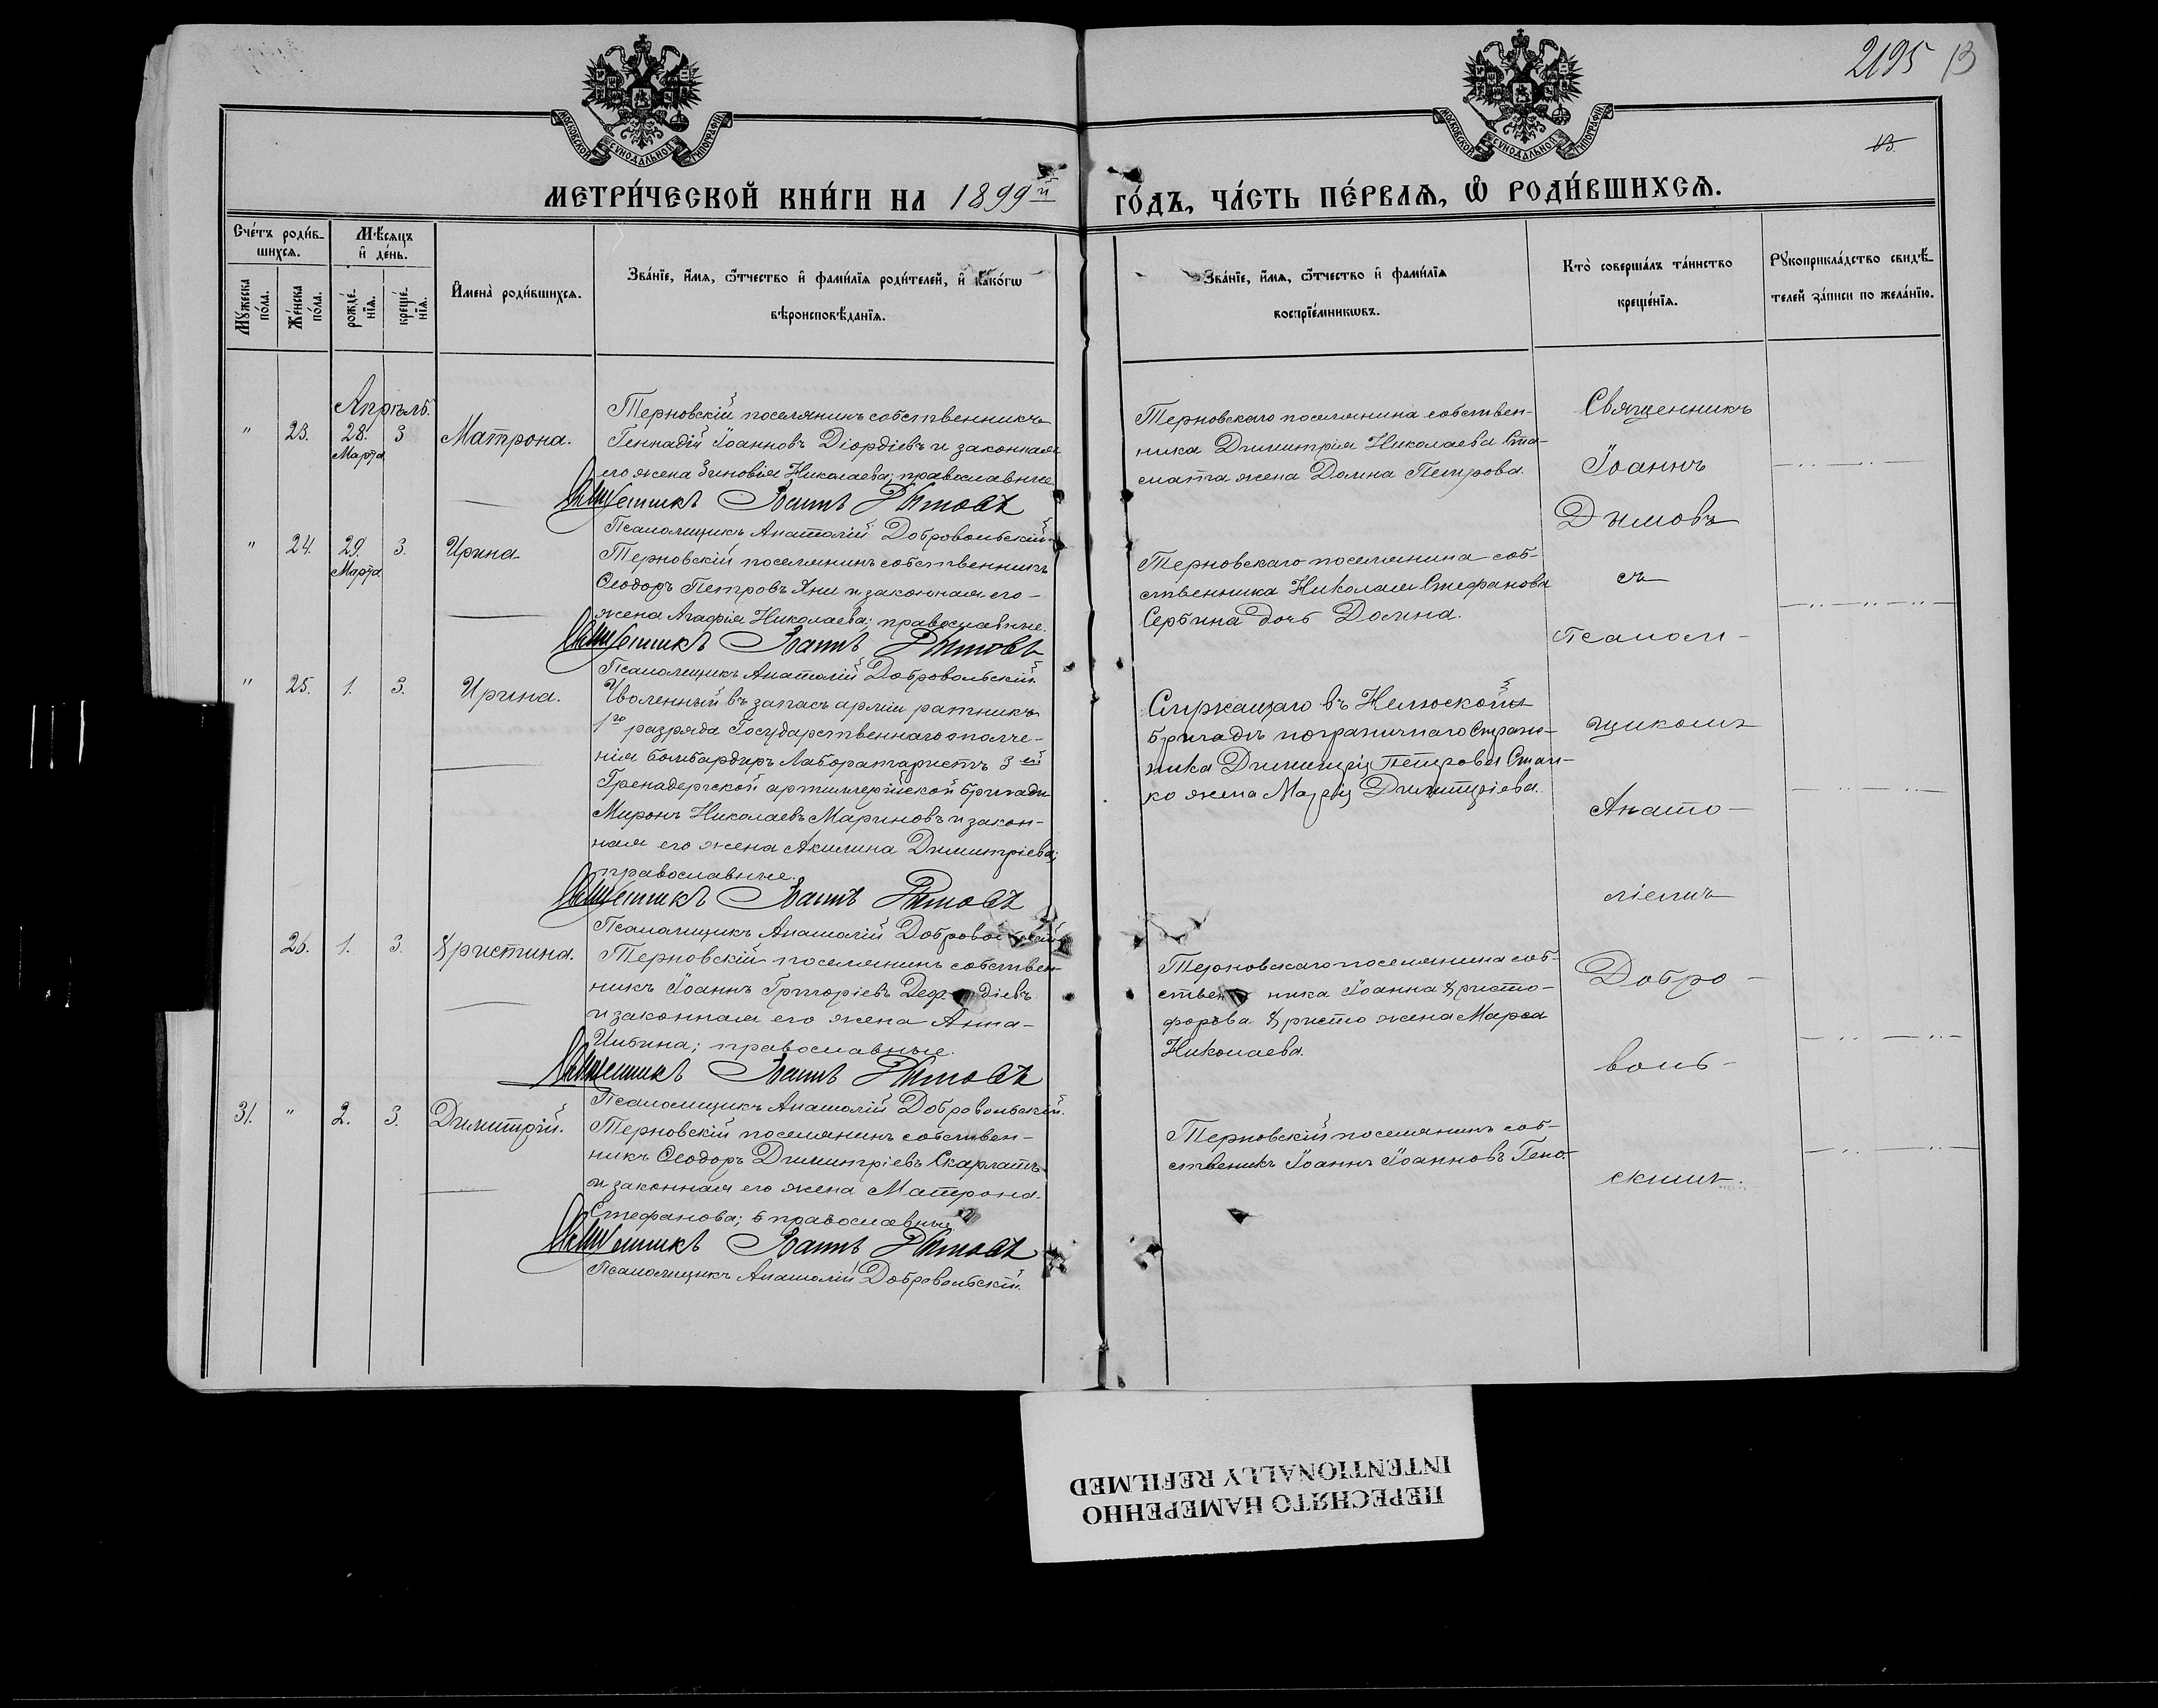 2195 13
13.
МОСКОВСКОЙ СѴНОДАЛЬНОЙ ТИПОГРАФІИ
МОСКОВСКОЙ СѴНОДАЛЬНОЙ ТИПОГРАФІИ
МЕТРИ́ЧЕСКОЙ КНИ́ГИ НА 1899й ГО́ДЪ, ЧА́СТЬ ПЕ́РВАѦ, Ѿ РОДИ́ВШИХСѦ.
Сче́тъ роди́в-
шихсѧ.
Мꙋ́жеска
по́ла.
Же́нска
по́ла.
Мѣ́сѧцъ
и҆ де́нь.
рожде́-
нїѧ.
креще́-
нїѧ.
И҆мена̀ роди́вшихсѧ.
Зва́нїе, и҆́мѧ, ѻ҆́тчество и҆ фами́лїѧ роди́телей, и҆ како́гѡ
вѣроисповѣ́данїѧ.
Зва́нїе, и҆́мѧ, ѻ҆́тчество и҆ фами́лїѧ
воспрїе́мникѡвъ.
Кто̀ соверша́лъ та́инство
креще́нїѧ.
Рꙋкоприкла́дство свидѣ́-
телей за́писи по жела́нїю.
Апрѣль.
" 23. 28. 3 Матрона.
Марта
Терновскій поселянинъ собственникъ
Геннадій Іоанновъ Діордіевъ и законная
его жена Зиновія Николаева; православные.
Священникъ Іоаннъ Дымовъ
Псаломщикъ Анатолій Добровольскій.
Терновскаго поселянина собствен-
ника Димитрія Николаева Ста-
мата жена Домна Петрова.
Священникъ
Іоаннъ
Дымовъ
съ
псалом-
щикомъ
Анато-
ліемъ
Добро-
воль-
скимъ.
" 24. 29. 3. Ирина.
Марта
Терновскій поселянинъ собственникъ
Ѳеодоръ Петровъ Яни и законная его
жена Агафія Николаева; православные.
Священникъ Іоаннъ Дымовъ
Псаломщикъ Анатолій Добровольскій.
Терновскаго поселянина соб-
ственника Николая Стефанова
Сербина дочь Домна.
" 25. 1. 3. Ирина.
Уволенный въ запасъ арміи ратникъ
1го разряда Государственнаго ополче-
нія бомбардиръ Лаборатористъ 3ей
Гренадерской артиллерійской бригады
Миронъ Николаевъ Мариновъ и закон-
ная его жена Акилина Димитріева;
православные.
Священникъ Іоаннъ Дымовъ
Псаломщикъ Анатолій Добровольскій
Служащаго въ
бригадѣ пограничнаго Страж-
ника Димитрія Петрова Стан-
ко жена Марія Димитріева.
26. 1. 3. Христина.
Терновскій поселянинъ собствен-
никъ Іоаннъ Григоріевъ
и законная его жена Анна
Ильина; православные.
Священникъ Іоаннъ Дымовъ
Псаломщикъ Анатолій Добровольскій.
Терновскаго поселянина соб-
ственника Іоанна Христо-
форова Христо жена Марѳа
Николаева.
31. " 2. 3. Димитрій.
Терновскій поселянинъ собствен-
никъ Ѳеодоръ Димитріевъ Скарлатъ
и законная его жена Матрона
Стефанова; православные.
Священникъ Іоаннъ Дымовъ
Псаломщикъ Анатолій Добровольскій.
Терновскій поселянинъ соб-
ственикъ Іоаннъ Іоанновъ Гено.
ПЕРЕСНЯТО НАМЕРЕННО
INTENTIONALLY REFILMED